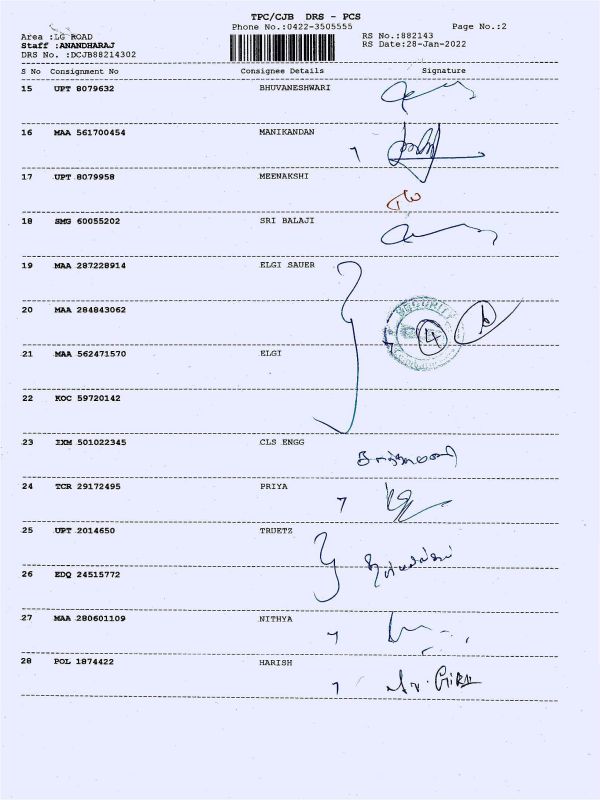 TPC/CJB DRS - PCS
Phone No.:0422-3505555 Page No.:2
Area :LG ROAD RS No.:882143
Staff :ANANDHARAJ RS Date:28-Jan-2022
DRS No. :DCJB88214302
S No Consignment No Consignee Details Signature
15 UPT 8079632 BHUVANESHWARI
16 MAA 561700454 MANIKANDAN
17 UPT 8079958 MEENAKSHI
18 SMG 60055202 SRI BALAJI
19 MAA 287228914 ELGI SAUER
20 MAA 284843062
SECURITY
4
21 MAA 562471570 ELGI
22 KOC 59720142
23 IXM 501022345 CLS ENGG
24 TCR 29172495 PRIYA
25 UPT 2014650 TRUETZ
26 EDQ 24515772
27 MAA 280601109 NITHYA
28 POL 1874422 HARISH